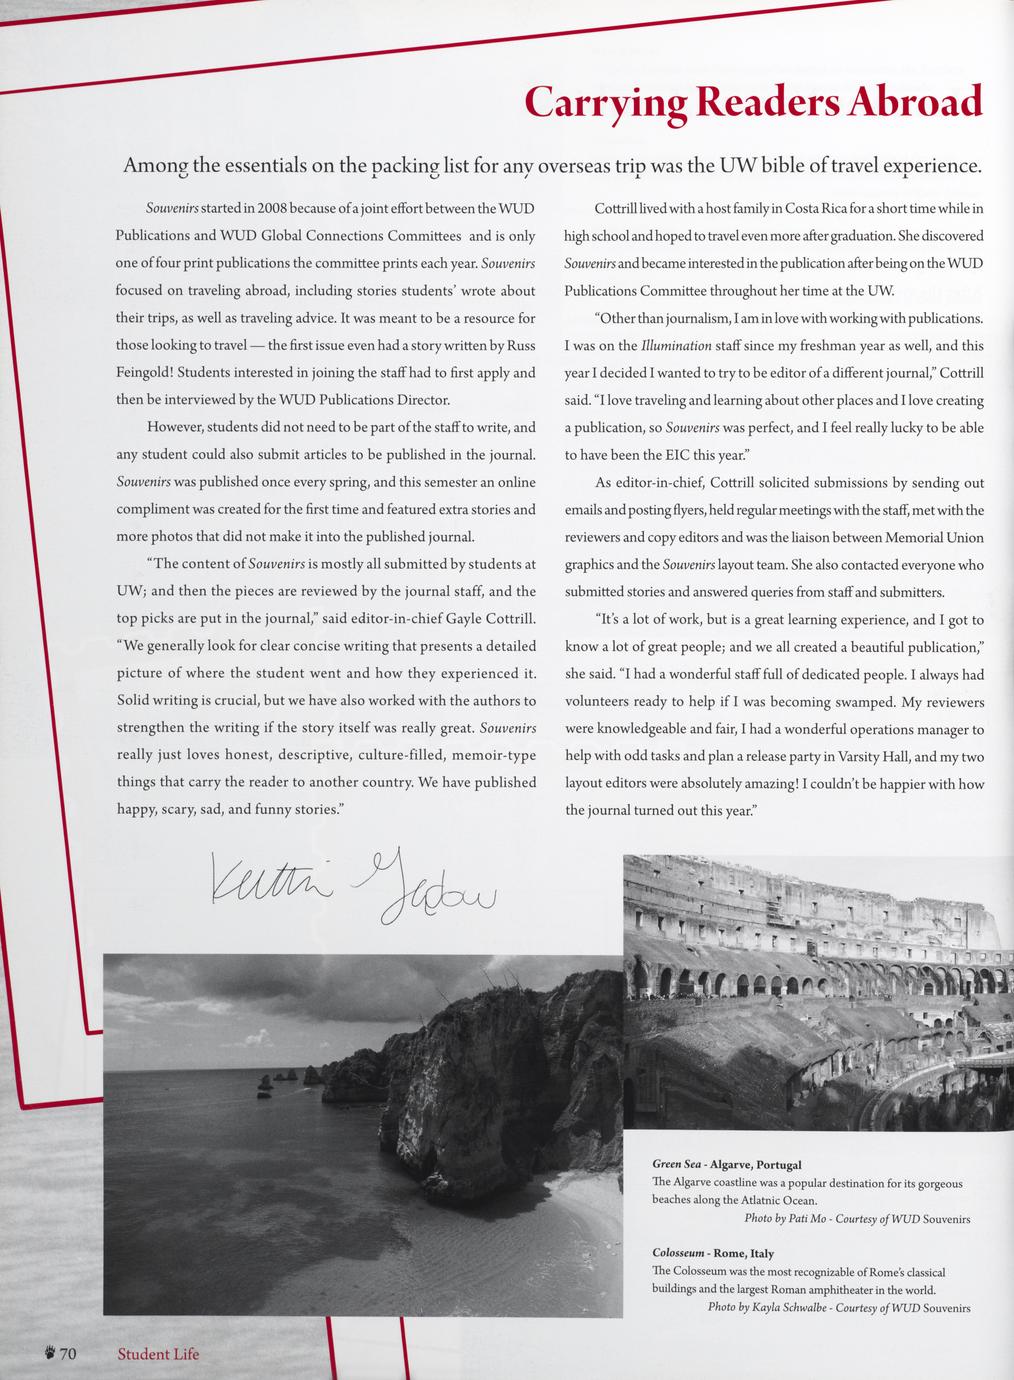 Carrying Readers Abroad
Among the essentials on the packing list for any overseas trip was the UW bible of travel experience.
Souvenirs started in 2008 because of a joint effort between the WUD
Publications and WUD Global Connections Committees and is only
one of four print publications the committee prints each year. Souvenirs
focused on traveling abroad, including stories students' wrote about
their trips, as well as traveling advice. It was meant to be a resource for
those looking to travel — the first issue even had a story written by Russ
Feingold! Students interested in joining the staff had to first apply and
then be interviewed by the WUD Publications Director.
However, students did not need to be part of the staff to write, and
any student could also submit articles to be published in the journal.
Souvenirs was published once every spring, and this semester an online
compliment was created for the first time and featured extra stories and
more photos that did not make it into the published journal.
"The content of Souvenirs is mostly all submitted by students at
UW; and then the pieces are reviewed by the journal staff, and the
top picks are put in the journal," said editor-in-chief Gayle Cottrill.
"We generally look for clear concise writing that presents a detailed
picture of where the student went and how they experienced it.
Solid writing is crucial, but we have also worked with the authors to
strengthen the writing if the story itself was really great. Souvenirs
really just loves honest, descriptive, culture-filled, memoir-type
things that carry the reader to another country. We have published
happy, scary, sad, and funny stories."
Cottrill lived with a host family in Costa Rica for a short time while in
high school and hoped to travel even more after graduation. She discovered
Souvenirs and became interested in the publication after being on the WUD
Publications Committee throughout her time at the UW.
"Other than journalism, I am in love with working with publications.
I was on the Illumination staff since my freshman year as well, and this
year I decided I wanted to try to be editor of a different journal," Cottrill
said. "I love traveling and learning about other places and I love creating
a publication, so Souvenirs was perfect, and I feel really lucky to be able
to have been the EIC this year."
As editor-in-chief, Cottrill solicited submissions by sending out
emails and posting flyers, held regular meetings with the staff, met with the
reviewers and copy editors and was the liaison between Memorial Union
graphics and the Souvenirs layout team. She also contacted everyone who
submitted stories and answered queries from staff and submitters.
"It's a lot of work, but is a great learning experience, and I got to
know a lot of great people; and we all created a beautiful publication,"
she said. "I had a wonderful staff full of dedicated people. I always had
volunteers ready to help if I was becoming swamped. My reviewers
were knowledgeable and fair, I had a wonderful operations manager to
help with odd tasks and plan a release party in Varsity Hall, and my two
layout editors were absolutely amazing! I couldn't be happier with how
the journal turned out this year."
Green Sea - Algarve, Portugal
The Algarve coastline was a popular destination for its gorgeous
beaches along the Atlatnic Ocean.
Photo by Pati Mo - Courtesy of WUD Souvenirs
Colosseum - Rome, Italy
The Colosseum was the most recognizable of Rome's classical
buildings and the largest Roman amphitheater in the world.
Photo by Kayla Schwalbe - Courtesy of WUD Souvenirs
70 Student Life